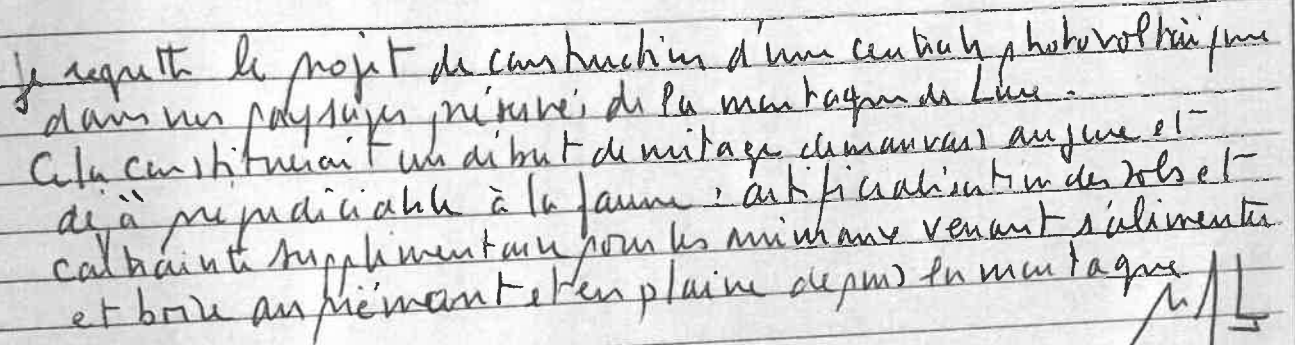 Je regrette le projet de construction d'une centrale photovoltaïque
dans les paysages préservés de la montagne de Lure.
Cela constituerait un début de mitage de mauvais augure et
déjà préjudiciable à la faune : artificialisation des sols et
contrainte supplémentaire pour les animaux venant s'alimenter
et boire au piémont et en plaine depuis la montagne